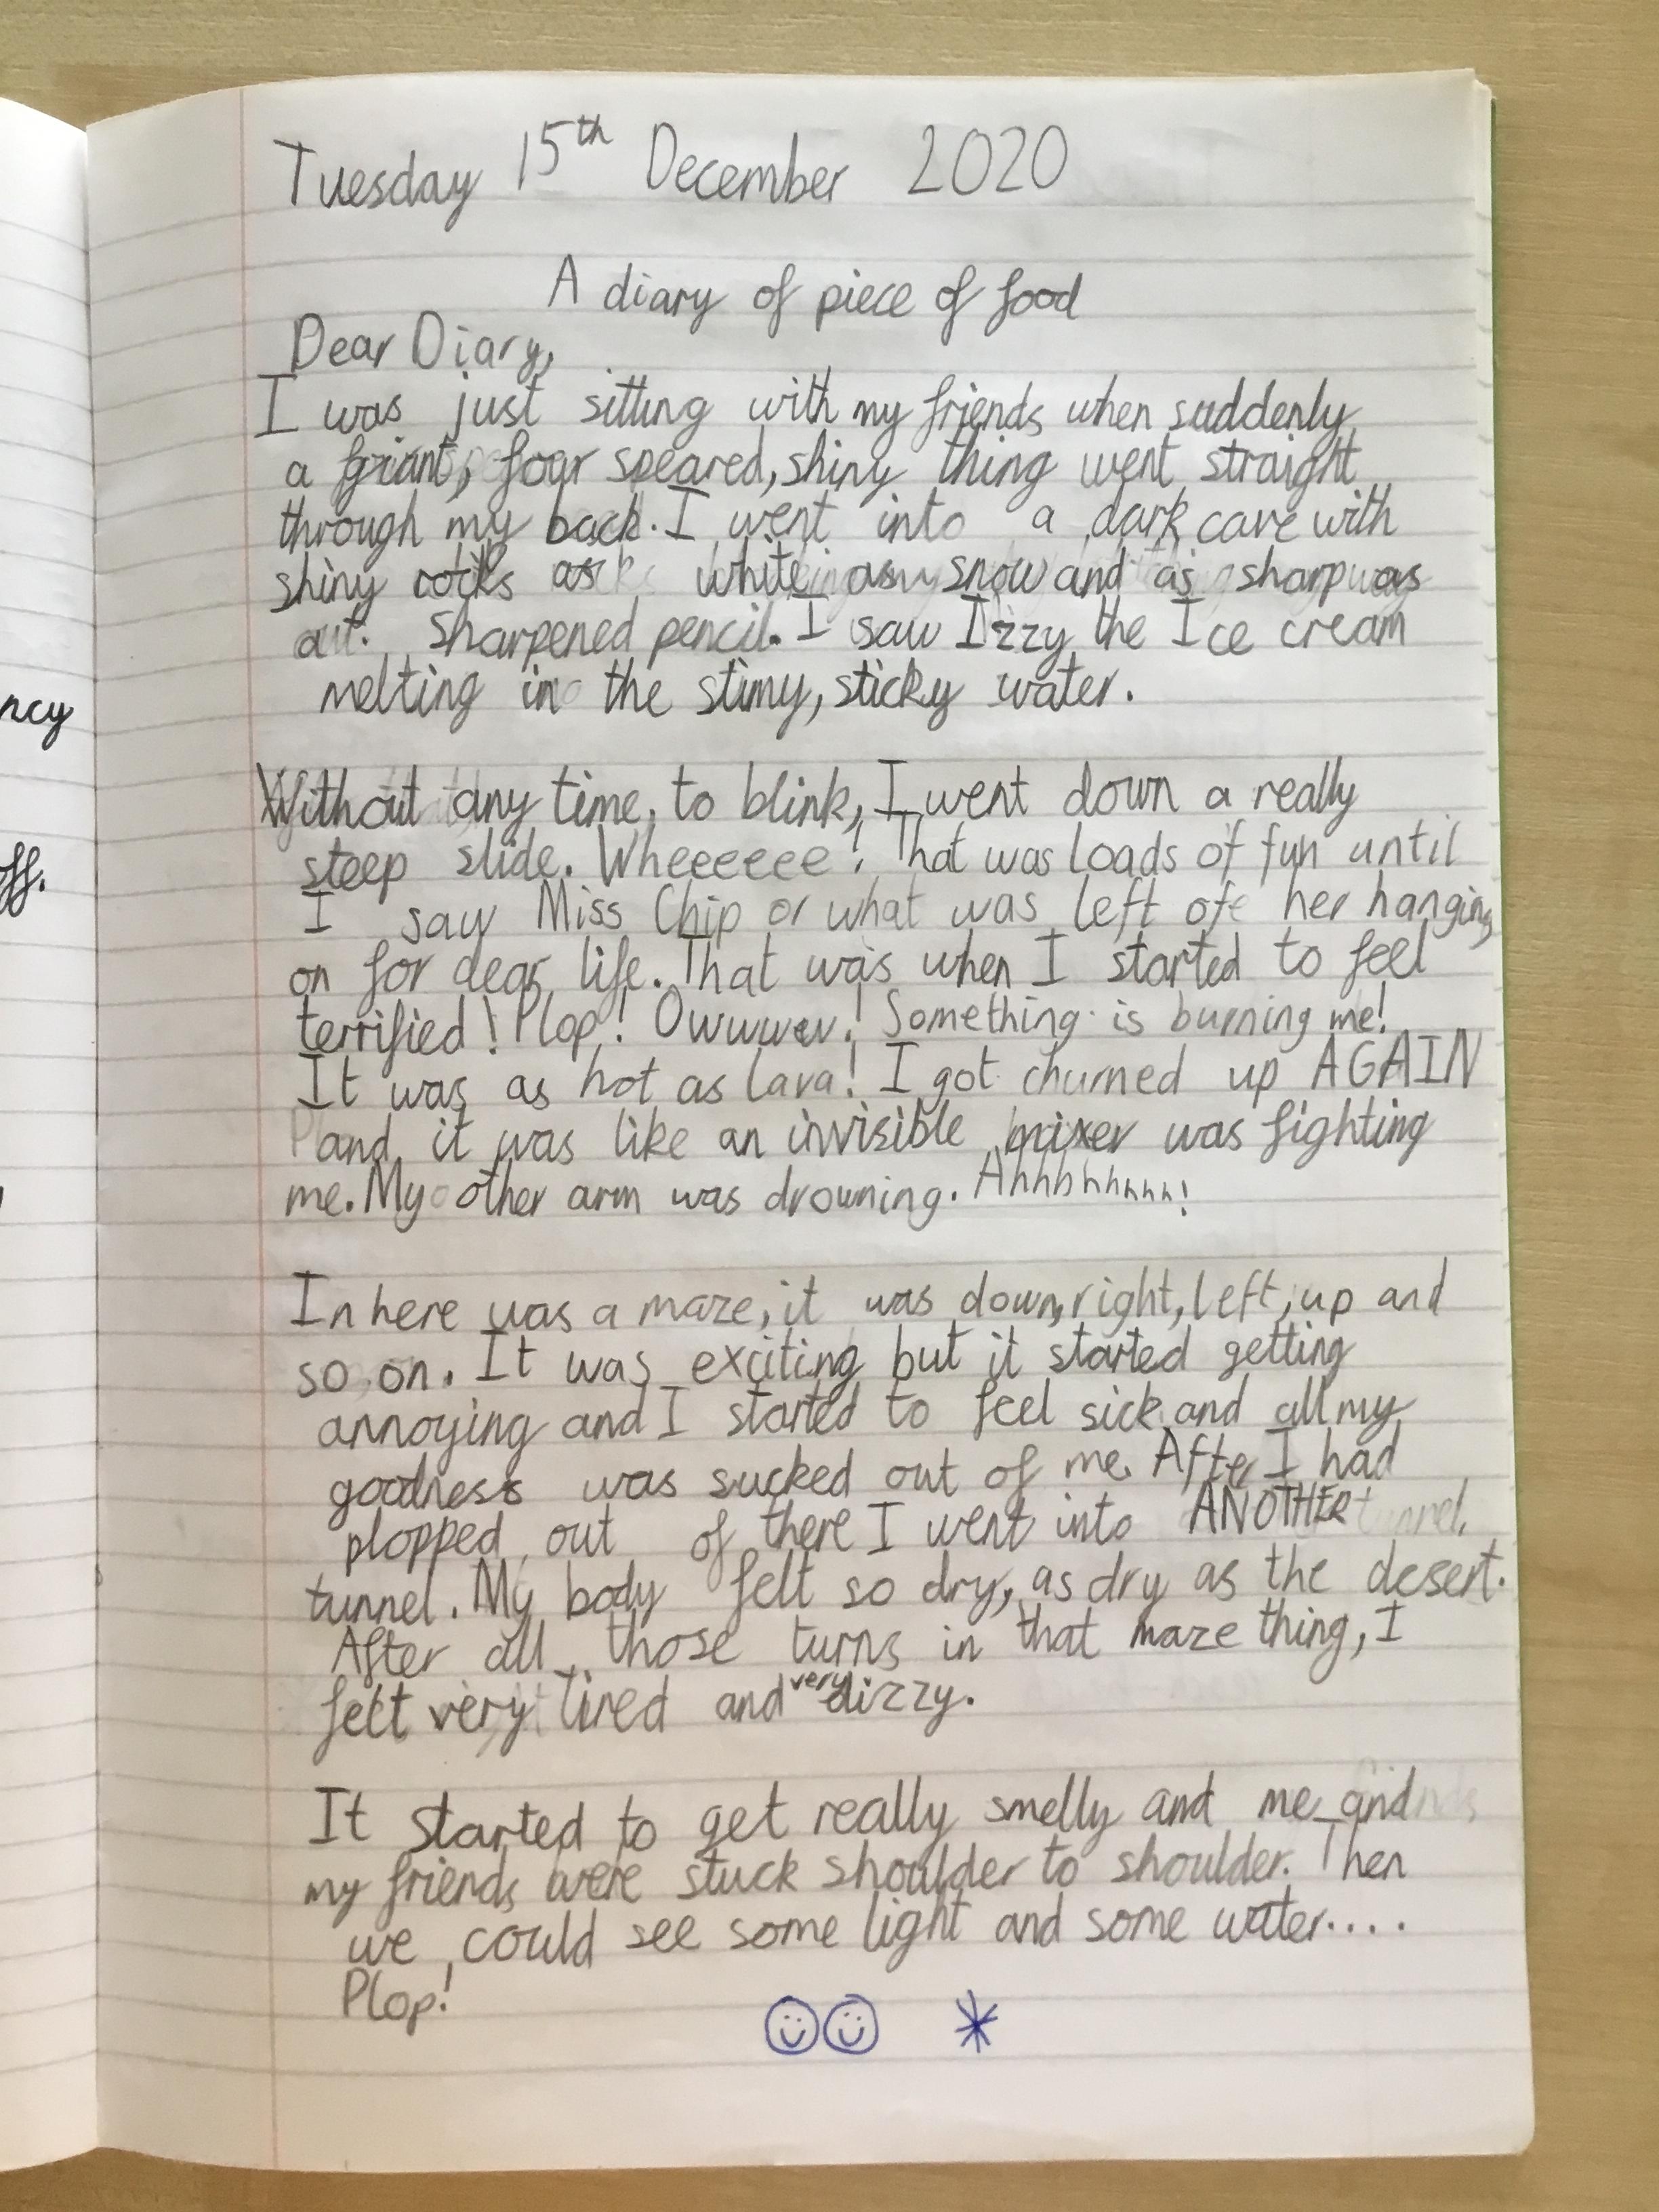 Tuesday 15th December 2020
A diary of piece of food
Dear Diary,
I was just sitting with my friends when suddenly
a giant, four speared, shiny thing went straight
through my back. I went into a dark cave with
shiny rocks as white as snow and as sharp as
a sharpened pencil. I saw Izzy the Ice cream
melting in the slimy, sticky water.
Without any time, to blink, I went down a really
steep slide. Wheeeeee! That was loads of fun until
I say Miss Chip or what was left of her hanging
on for dear life. That was when I started to feel
terrified! Plop! Owwww! Something is burning me!
It was as hot as lava! I got churned up AGAIN
and it was like an invisible mixer was fighting
me. My other arm was drowning. Ahhhhhhhh!
In here was a maze, it was down, right, left, up and
so on. It was exciting but it started getting
annoying and I started to feel sick and all my
goodness was sucked out of me. After I had
plopped out of there I went into ANOTHER
tunnel. My body felt so dry, as dry as the desert.
After all those turns in that maze thing, I
felt very tired and very dizzy.
It started to get really smelly and me and
my friends were stuck shoulder to shoulder. Then
we could see some light and some water....
Plop!
ncy
ff.